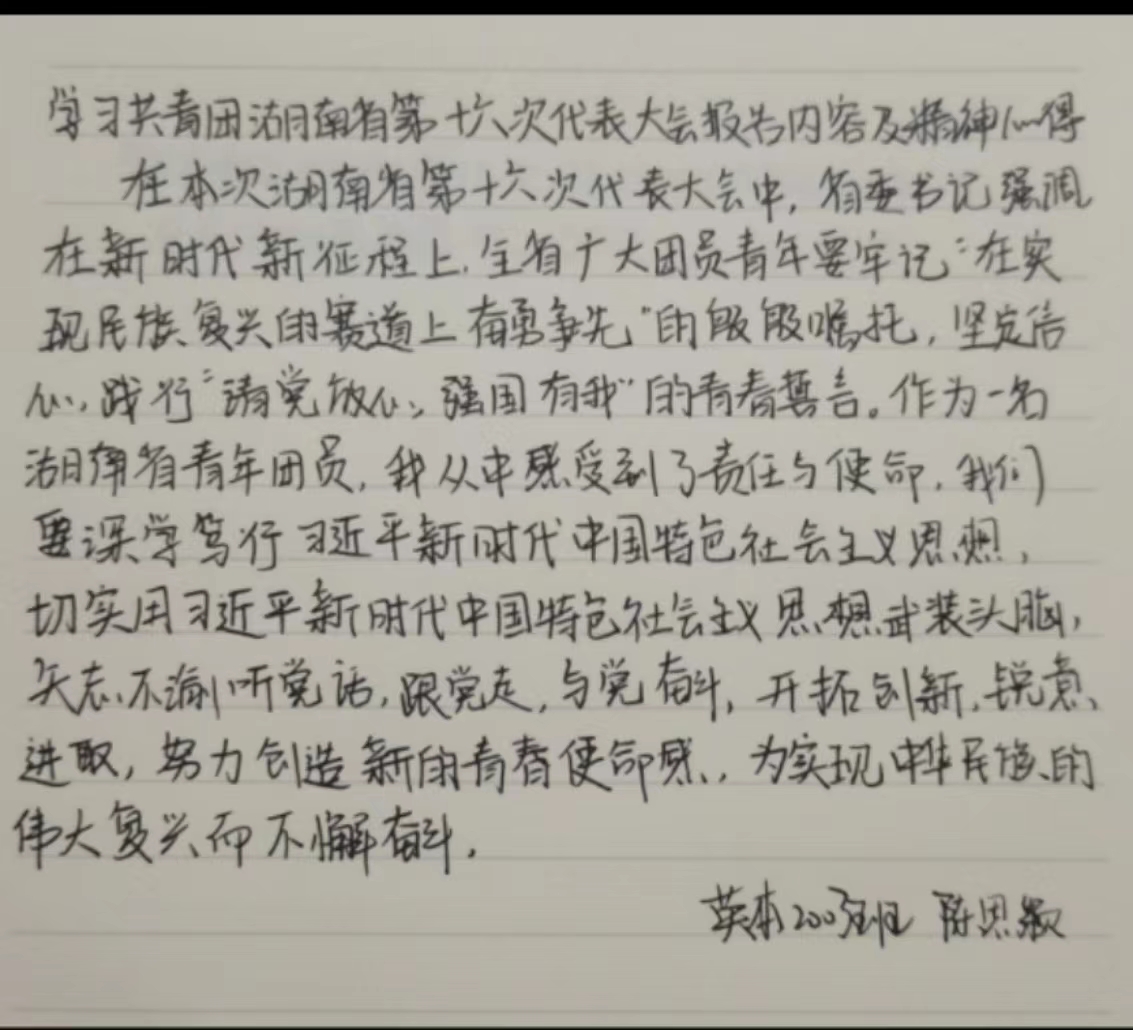 学习共青团湖南省第十六次代表大会报告内容及精神心得
在本次湖南省第十六次代表大会中，省委书记强调
在新时代新征程上，全省广大团员青年要牢记“在实
现民族复兴的赛道上奋勇争先”的殷殷嘱托，坚定信
心，践行“请党放心，强国有我”的青春誓言。作为一名
湖南省青年团员，我从中感受到了责任与使命，我们
要深学笃行习近平新时代中国特色社会主义思想，
切实用习近平新时代中国特色社会主义思想武装头脑，
矢志不渝听党话，跟党走，与党奋斗，开拓创新，锐意
进取，努力创造新的青春使命感，为实现中华民族的
伟大复兴而不懈奋斗。
英本2003班 陈思